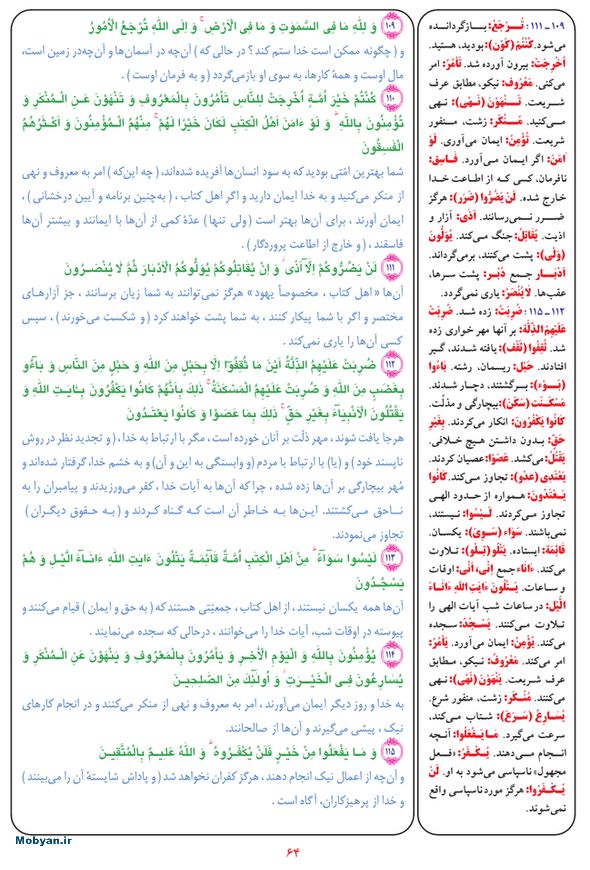 ۱۰۹ وَ لِلّٰهِ مَا فِی السَّمٰوٰتِ وَ مَا فِی الْاَرْضِ ۚ وَ اِلَی اللّٰهِ تُرْجَعُ الْاُمُورُ
و ( چگونه ممکن است خدا ستم کند ؟ در حالی که ) آن‌چه در آسمان‌ها و آن‌چه در زمین است،
مال اوست و همهٔ کارها، به سوی او بازمی‌گردد ( و به فرمان اوست ) .
۱۱۰ كُنْتُمْ خَيْرَ اُمَّةٍ اُخْرِجَتْ لِلنَّاسِ تَأْمُرُونَ بِالْمَعْرُوفِ وَ تَنْهَوْنَ عَنِ الْمُنْكَرِ وَ
تُؤْمِنُونَ بِاللّٰهِ ۗ وَ لَوْ ءَامَنَ اَهْلُ الْكِتٰبِ لَكَانَ خَيْرًا لَهُمْ ۚ مِنْهُمُ الْمُؤْمِنُونَ وَ اَكْثَرُهُمُ
الْفٰسِقُونَ
شما بهترین امّتی بودید که به سود انسان‌ها آفریده شده‌اند، ( چه این‌که ) امر به معروف و نهی
از منکر می‌کنید و به خدا ایمان دارید و اگر اهل کتاب ، ( به‌چنین برنامه و آیین درخشانی ) ،
ایمان آورند ، برای آن‌ها بهتر است ( ولی تنها ) عدّهٔ کمی از آن‌ها با ایمانند و بیشتر آن‌ها
فاسقند ، ( و خارج از اطاعت پروردگار ) .
۱۱۱ لَنْ يَضُرُّوكُمْ اِلَّآ اَذًى ۖ وَ اِنْ يُقَاتِلُوكُمْ يُوَلُّوكُمُ الْاَدْبَارَ ثُمَّ لَا يُنْصَرُونَ
آن‌ها « اهل کتاب ، مخصوصاً یهود» هرگز نمی‌توانند به شما زیان برسانند ، جز آزارهای
مختصر و اگر با شما پیکار کنند ، به شما پشت خواهند کرد ( و شکست می‌خورند ) ، سپس
کسی آن‌ها را یاری نمی‌کند .
۱۱۲ ضُرِبَتْ عَلَيْهِمُ الذِّلَّةُ اَيْنَ مَا ثُقِفُوٓا اِلَّا بِحَبْلٍ مِنَ اللّٰهِ وَ حَبْلٍ مِنَ النَّاسِ وَ بَآءُو
بِغَضَبٍ مِنَ اللّٰهِ وَ ضُرِبَتْ عَلَيْهِمُ الْمَسْكَنَةُ ۚ ذٰلِكَ بِاَنَّهُمْ كَانُوا يَكْفُرُونَ بِـَٔايٰتِ اللّٰهِ وَ
يَقْتُلُونَ الْاَنْبِيَآءَ بِغَيْرِ حَقٍّ ۚ ذٰلِكَ بِمَا عَصَوْا وَ كَانُوا يَعْتَدُونَ
هرجا یافت شوند ، مهر ذلّت بر آنان خورده است ، مگر با ارتباط به خدا ، ( و تجدید نظر در روش
ناپسند خود ) و (یا) با ارتباط با مردم (و وابستگی به این و آن) و به خشم خدا، گرفتار شده‌اند و
مُهر بیچارگی بر آن‌ها زده شده ، چرا که آن‌ها به آیات خدا ، کفر می‌ورزیدند و پیامبران را به
ناحق می‌کشتند. این‌ها به خاطر آن است که گناه کردند و ( به حقوق دیگران )
تجاوز می‌نمودند.
۱۱۳ لَيْسُوا سَوَآءً ۗ مِنْ اَهْلِ الْكِتٰبِ اُمَّةٌ قَآئِمَةٌ يَتْلُونَ ءَايٰتِ اللّٰهِ ءَانَآءَ الَّيْلِ وَ هُمْ
يَسْجُدُونَ
آن‌ها همه یکسان نیستند ، از اهل کتاب ، جمعیّتی هستند که ( به حق و ایمان ) قیام می‌کنند و
پیوسته در اوقات شب، آیات خدا را می‌خوانند ، درحالی که سجده می‌نمایند .
۱۱۴ يُؤْمِنُونَ بِاللّٰهِ وَ الْيَوْمِ الْاٰخِرِ وَ يَأْمُرُونَ بِالْمَعْرُوفِ وَ يَنْهَوْنَ عَنِ الْمُنْكَرِ وَ
يُسَارِعُونَ فِی الْخَيْرٰتِ ۖ وَ اُولٰٓئِكَ مِنَ الصّٰلِحِينَ
به خدا و روز دیگر ایمان می‌آورند ، امر به معروف و نهی از منکر می‌کنند و در انجام کارهای
نیک ، پیشی می‌گیرند و آن‌ها از صالحانند.
۱۱۵ وَ مَا يَفْعَلُوا مِنْ خَيْرٍ فَلَنْ يُكْفَرُوهُ ۗ وَ اللّٰهُ عَلِيمٌ بِالْمُتَّقِينَ
و آن‌چه از اعمال نیک انجام دهند ، هرگز کفران نخواهد شد ( و پاداش شایستهٔ آن را می‌بینند )
و خدا از پرهیزکاران، آگاه است .
۱۰۹ ـ ۱۱۱: تُرْجَعُ: بازگردانده
می‌شود. كُنْتُمْ (كَوْن): بودید، هستید.
اُخْرِجَتْ: بیرون آورده شد. تَأْمُرُ: امر
می‌کنی. مَعْرُوف: نیکو، مطابق عرف
شریعت. تَنْهَوْنَ (نَهْی): نهی
می‌کنید. مُنْكَر: زشت، منفور
شریعت. تُؤْمِنُ: ایمان می‌آوری. لَوْ
اٰمَنَ: اگر ایمان می‌آورد. فَاسِق:
نافرمان، کسی که از اطاعت خدا
خارج شده. لَنْ يَضُرُّوا (ضَرَر): هرگز
ضرر نمی‌رسانند. اَذًى: آزار و
اذیت. يُقَاتِلُ: جنگ می‌کند. يُوَلُّونَ
(وَلْی): پشت می‌کنند، برمی‌گرداند.
اَدْبَار: جمع دُبُر: پشت سرها،
عقب‌ها. لَا يُنْصَرُ: یاری نمی‌گردد.
۱۱۲ ـ ۱۱۵: ضُرِبَتْ: زده شد. ضُرِبَتْ
عَلَيْهِمُ الذِّلَّةُ: بر آنها مهر خواری زده
شد. ثُقِفُوا (ثَقْف): یافته شدند، گیر
افتادند. حَبْل: ریسمان، رشته. بَاءُوا
(بَوْء): برگشتند، دچار شدند.
مَسْكَنَت (سَكَنَ): بیچارگی و مذلّت.
كَانُوا يَكْفُرُونَ: انکار می‌کردند. بِغَيْرِ
حَقٍّ: بدون داشتن هیچ خلافی.
يَقْتُلُ: می‌کشد. عَصَوْا: عصیان کردند.
يَعْتَدِی (عدو): تجاوز می‌کند. كَانُوا
يَعْتَدُونَ: همواره از حدود الهی
تجاوز می‌کردند. لَيْسُوا: نیستند،
نمی‌باشند. سَوَاء (سَوی): یکسان.
قَائِمَة: ایستاده. يَتْلُو (تِلو): تلاوت
می‌کند. ءَانَاء جمع اِنْی، اَنْی: اوقات
و ساعات. يَتْلُونَ ءَايٰتِ اللّٰهِ ءَانَاءَ
الَّيْلِ: در ساعات شب آیات الهی را
تلاوت می‌کنند. يَسْجُدُ: سجده
می‌کند. يُؤْمِنُ: ایمان می‌آورد. يَأْمُرُ:
امر می‌کند. مَعْرُوف: نیکو، مطابق
عرف شریعت. يَنْهَوْنَ (نَهْی): نهی
می‌کنند. مُنْكَر: زشت، منفور شرع.
يُسَارِعُ (سَرَعَ): شتاب می‌کند،
سرعت می‌گیرد. مَا يَفْعَلُوا: آنچه
انجام می‌دهند. يُكْفَرُ: «فعل
مجهول» ناسپاسی می‌شود به او. لَنْ
يُكْفَرُوا: هرگز مورد ناسپاسی واقع
نمی‌شوند.
Mobyan.ir
۶۴